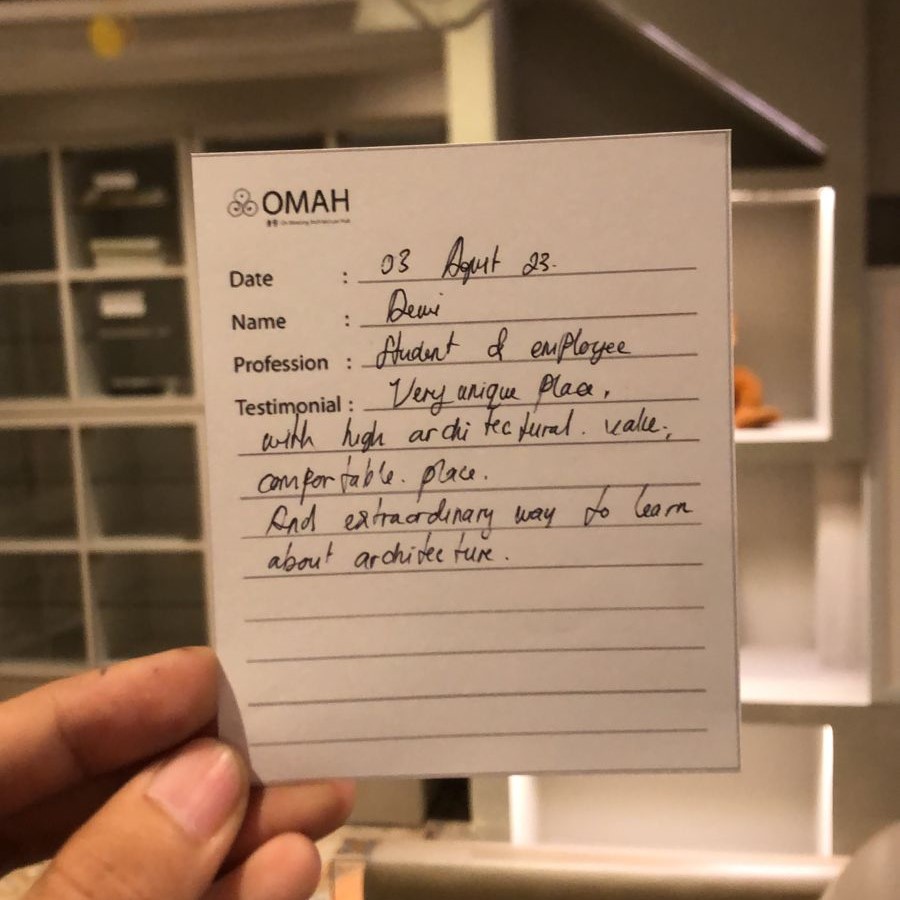 OMAH
Date : 03 Agust 23.
Name : Dewi
Profession : Student & employee
Testimonial : Very unique place,
with high architectural. value,
comfortable. place.
And extraordinary way to learn
about architecture.